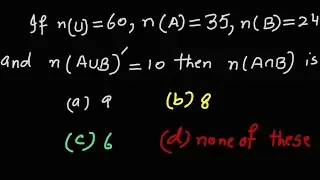 If n(U)=60, n(A)=35, n(B)=24
and n(A∪B)′=10 then n(A∩B) is
(a) 9 (b) 8
(c) 6 (d) none of these